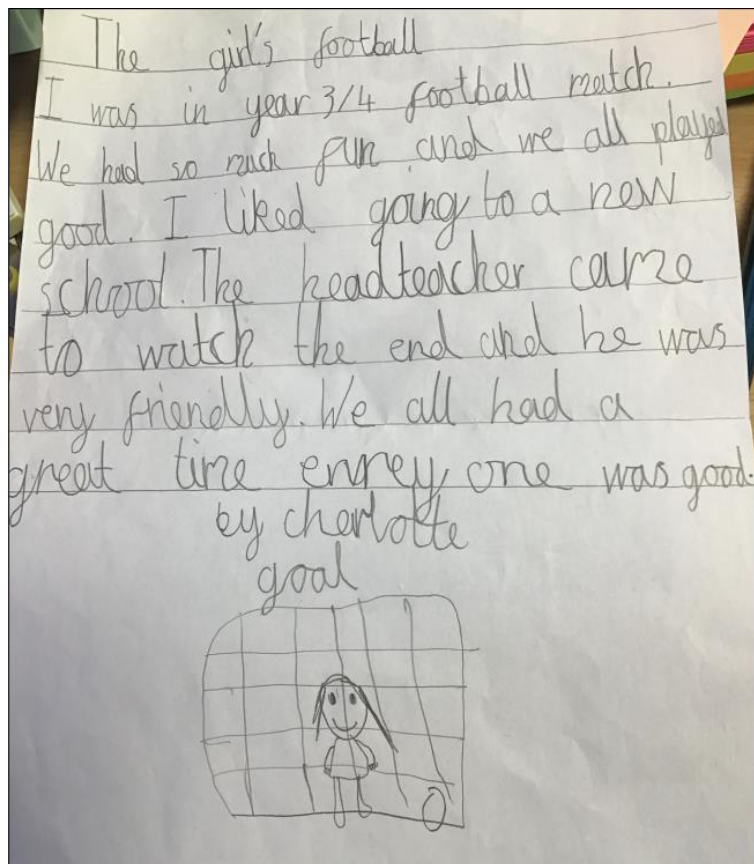 The girl's football
I was in year 3/4 football match.
We had so much fun and we all played
good. I liked going to a new
school. The headteacher came
to watch the end and he was
very friendly. We all had a
great time enrey one was good.
by charlotte
goal